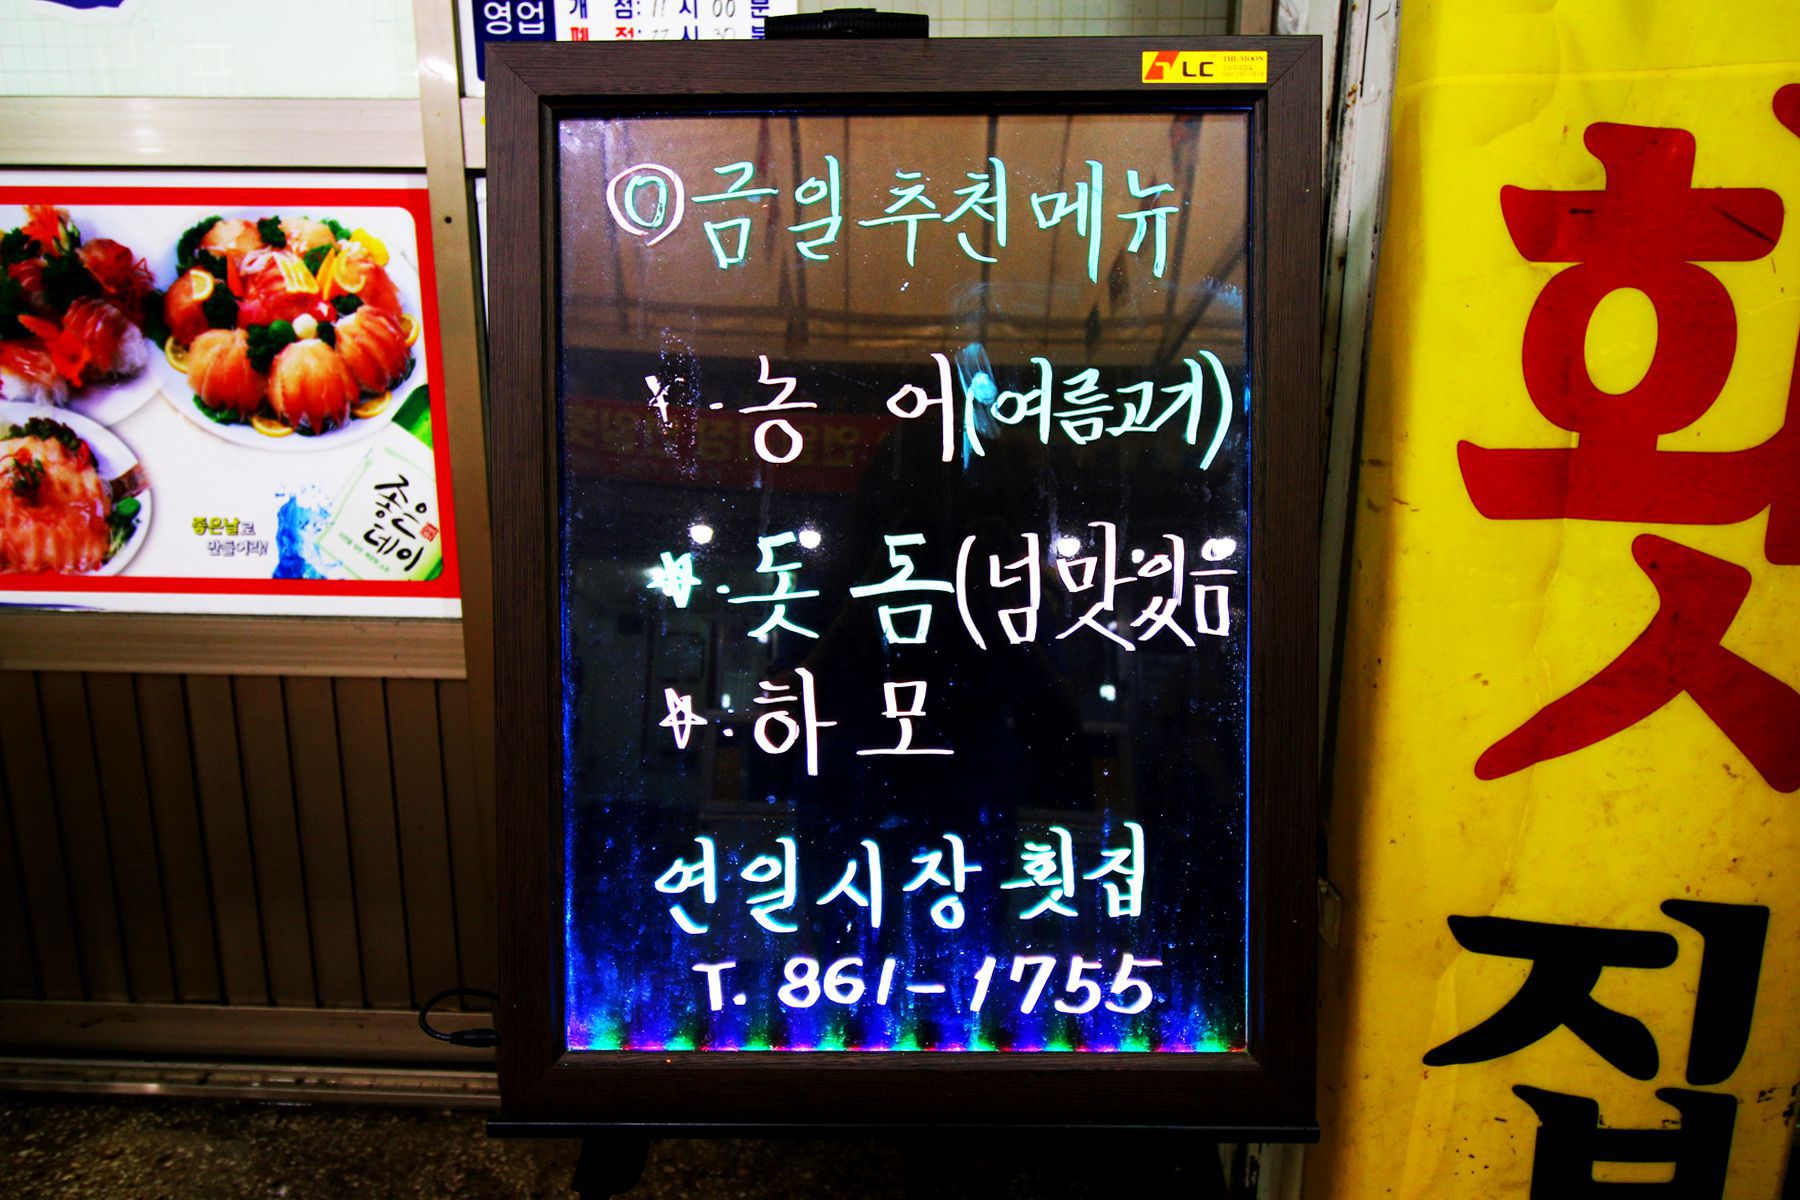 영업
개 점: 11 시 00 분
TLC
THE MOON
◎ 금일추천메뉴
농 어(여름고기)
돗 돔(넘맛있음
☆·하 모
연일시장 횟집
T. 861-1755
좋은날로
만들어라!
좋은
데이
횟
집